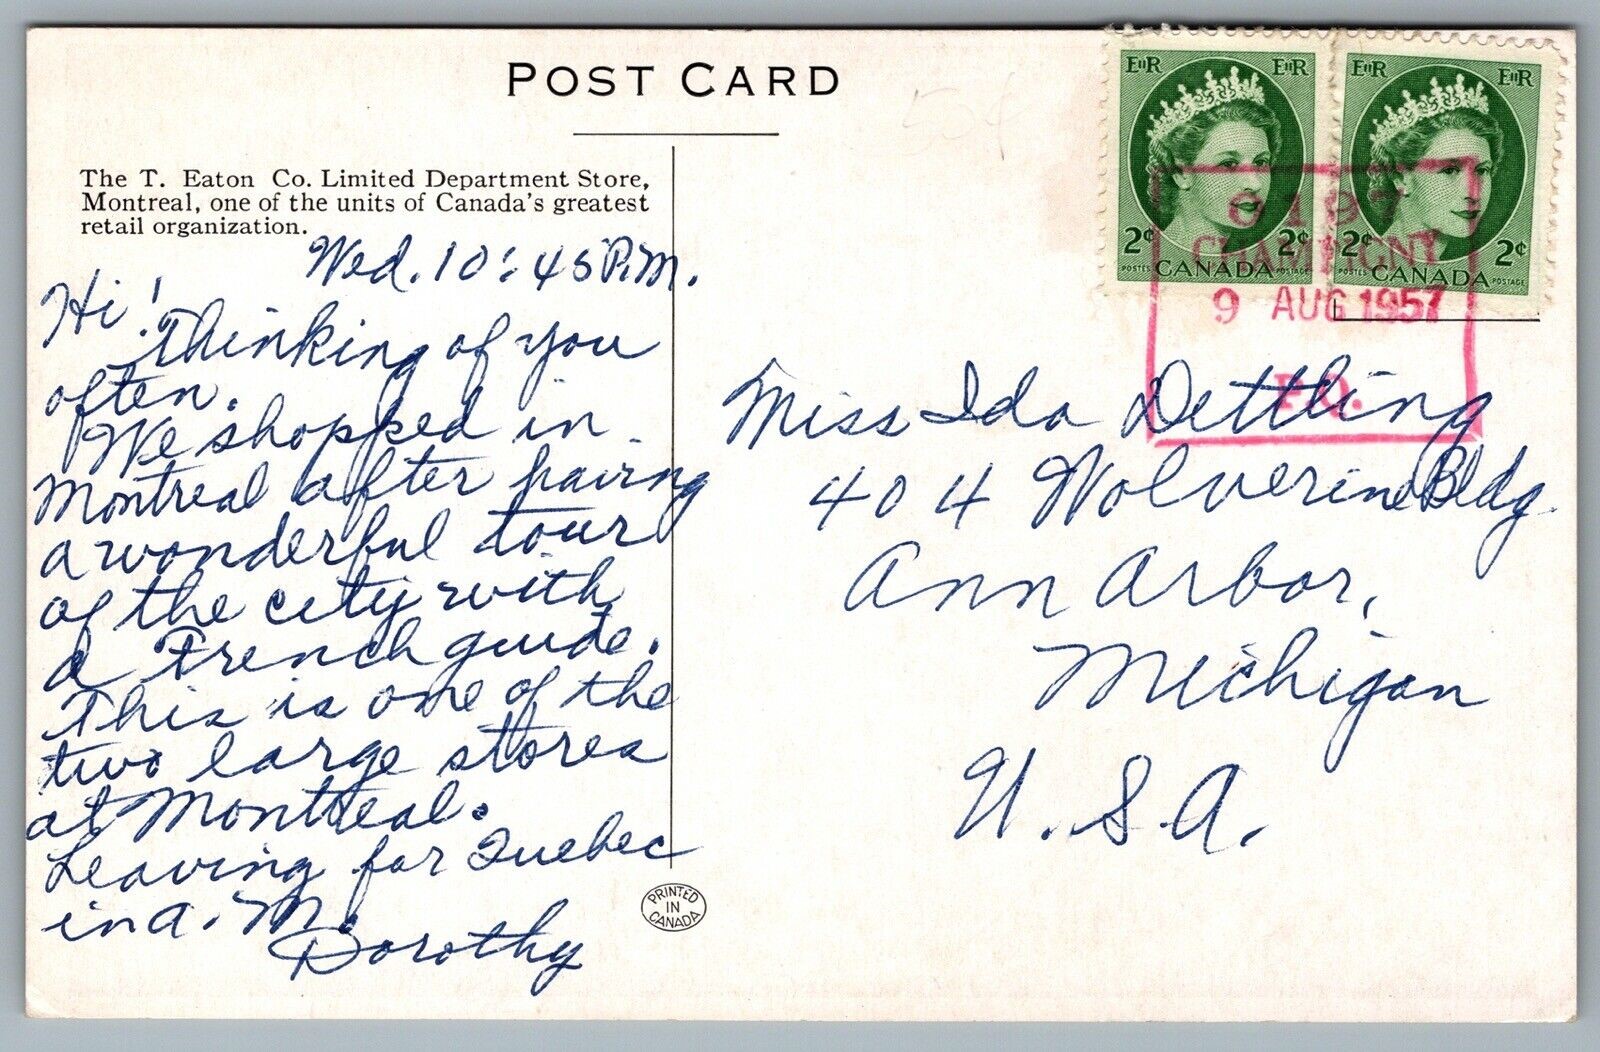 POST CARD
The T. Eaton Co. Limited Department Store,
Montreal, one of the units of Canada's greatest
retail organization.
Wed. 10:45 P.M.
Hi! Thinking of you
often.
We shopped in
Montreal after having
a wonderful tour
of the city with
a French guide.
This is one of the
two large stores
at Montreal.
Leaving for Quebec
in A.M.
Dorothy
PRINTED
IN
CANADA
50¢
EIIR EIIR
2¢ 2¢
POSTES CANADA POSTAGE
EIIR EIIR
2¢ 2¢
POSTES CANADA POSTAGE
9 AUG 1957
P.O.
Miss Ida Dettling
404 Wolverine Bldg.
Ann Arbor,
Michigan
U.S.A.